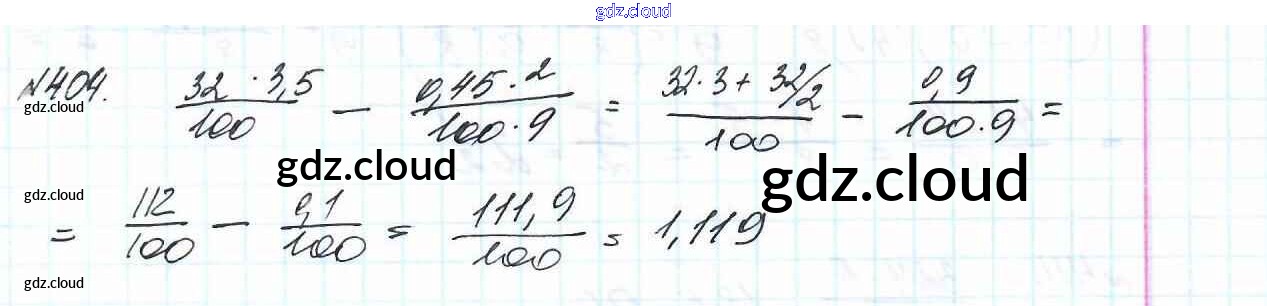 gdz.cloud
№404. 32·3,5/100 − 0,45·2/100·9 = 32·3+32/2/100 − 0,9/100·9 =
gdz.cloud
gdz.cloud gdz.cloud
gdz.cloud
= 112/100 − 0,1/100 = 111,9/100 = 1,119
gdz.cloud